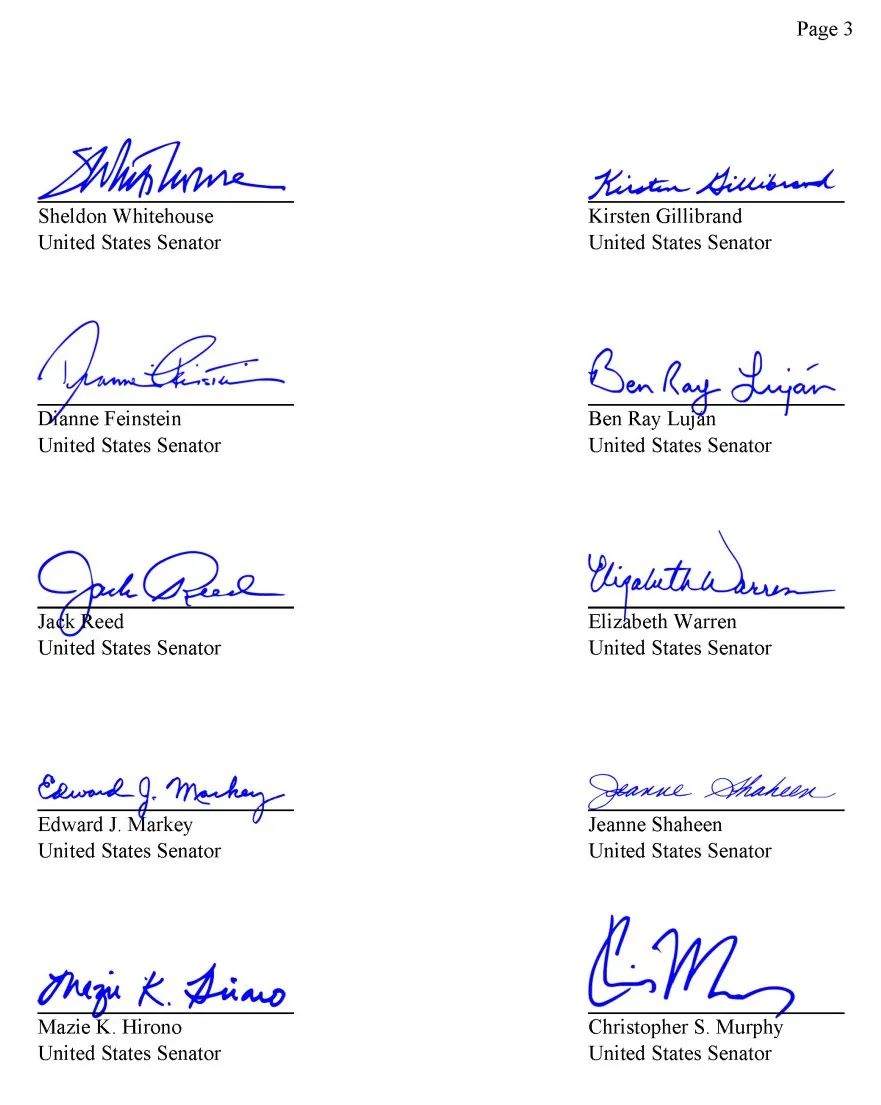 Page 3
SWhitehouse
Sheldon Whitehouse
United States Senator
Kirsten Gillibrand
Kirsten Gillibrand
United States Senator
Dianne Feinstein
Dianne Feinstein
United States Senator
Ben Ray Luján
Ben Ray Luján
United States Senator
Jack Reed
Jack Reed
United States Senator
Elizabeth Warren
Elizabeth Warren
United States Senator
Edward J. Markey
Edward J. Markey
United States Senator
Jeanne Shaheen
Jeanne Shaheen
United States Senator
Mazie K. Hirono
Mazie K. Hirono
United States Senator
Christopher S. Murphy
United States Senator